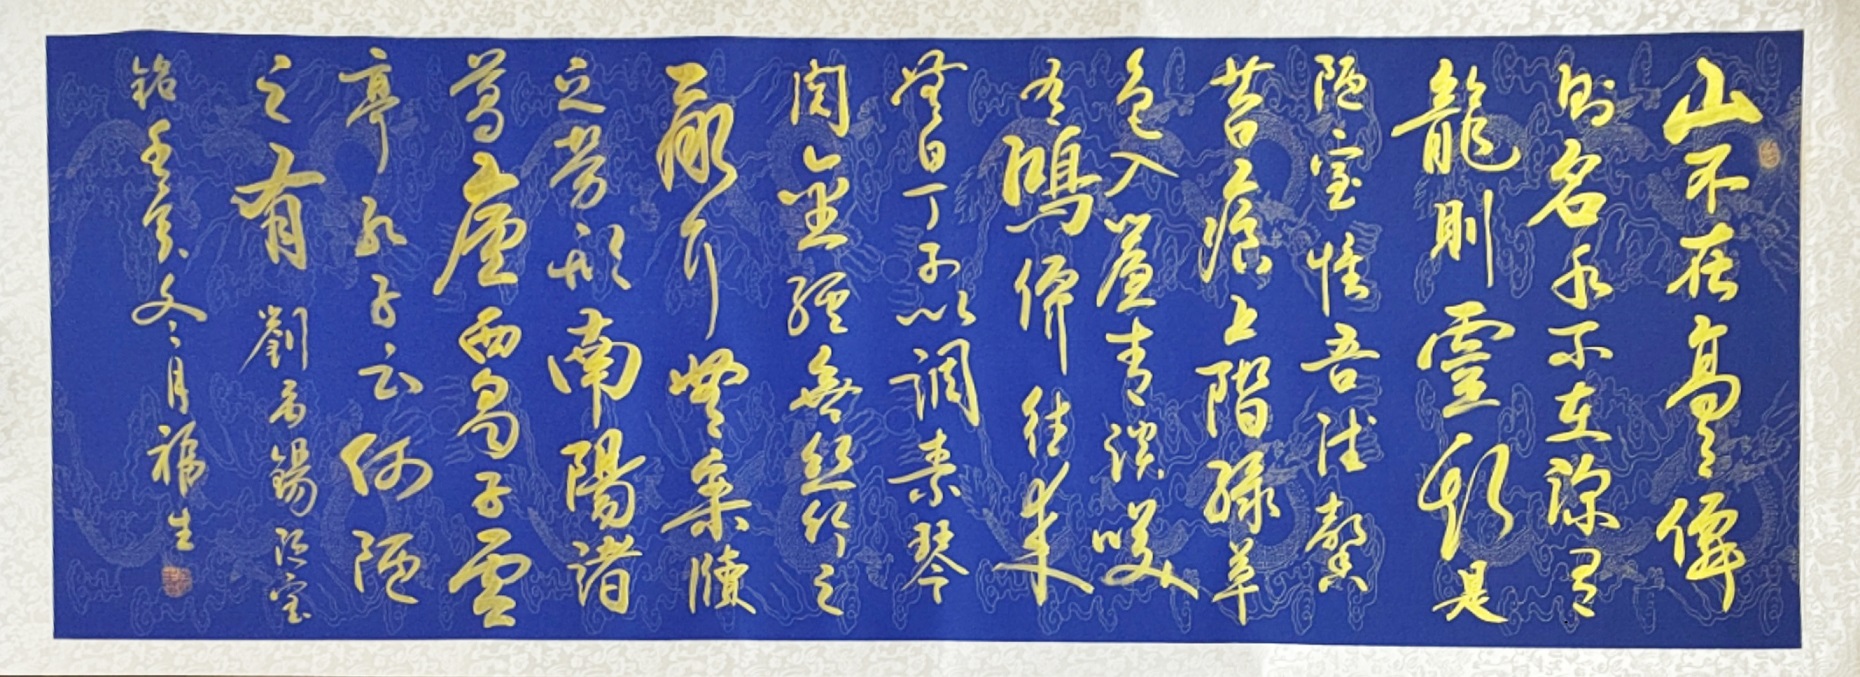 山不在高有僊
則名水不在深有
龍則靈斯是
陋室惟吾德馨
苔痕上階緑草
色入簾青談咲
有鴻儒往来
無白丁可以調素琴
閲金經無絲竹之
亂耳無案牘
之勞形南陽諸
葛廬西蜀子雲
亭孔子云何陋
之有 劉禹錫陋室
銘 壬寅冬月福生